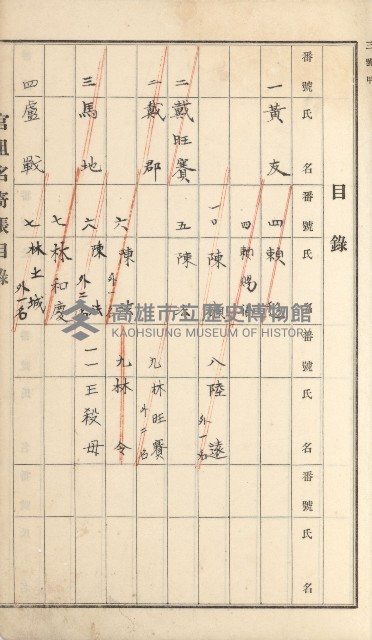 三號甲
目錄
番號 氏 名
一 黃友
二 戴旺賽
二 戴郡
三 馬地
四 盧戰
番號 氏 名
四 賴
四 賴
一〇 陳
五 陳
六 陳
六 陳 外二名
七 林和慶
七 林土城 外一名
番號 氏 名
八 陸遠 外一名
九 林旺賽 外二名
九 林令
一一 王殺毋
番號 氏 名
官租名寄帳目錄
高雄市立歷史博物館
KAOHSIUNG MUSEUM OF HISTORY